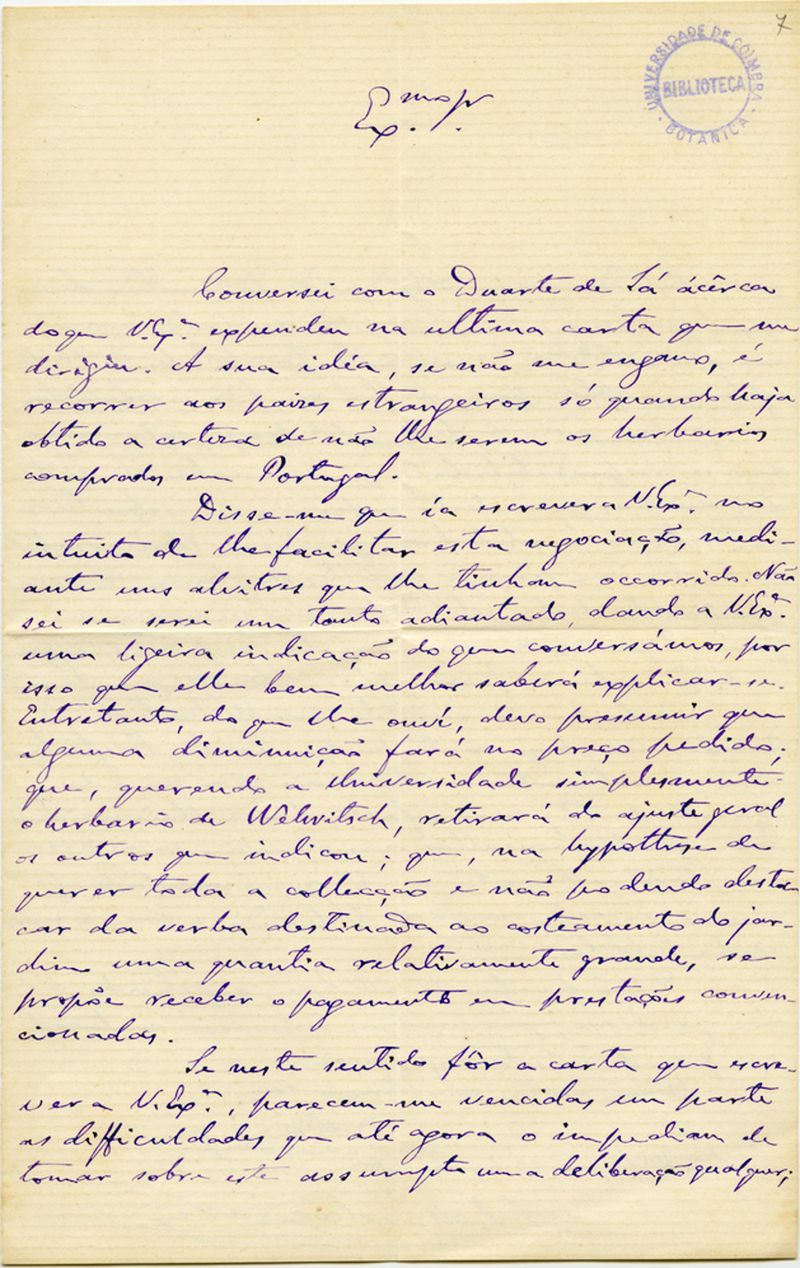 7
UNIVERSIDADE DE COIMBRA
BIBLIOTECA
BOTANICA
Ex.mo Sr.
Conversei com o Duarte de Sá ácêrca
do que V. Ex.ª expendeu na ultima carta que me
dirigiu. A sua idéa, se não me engano, é
recorrer aos paizes estrangeiros só quando haja
obtido a certeza de não lhe serem os herbarios
comprados em Portugal.
Disse-me que ia escrever a V. Ex.ª no
intuito de lhe facilitar esta negociação, medi-
ante uns alvitres que lhe tinham occorrido. Não
sei se serei um tanto adiantado, dando a V. Ex.ª
uma ligeira indicação do que conversámos, por
isso que elle bem melhor saberá explicar-se.
Entretanto, do que lhe ouvi, devo presumir que
alguma diminuição fará no preço pedido;
que, querendo a Universidade simplesmente
o herbario de Welwitsch, retirará do ajuste geral
os outros que indicou; que, na hypothese de
querer toda a collecção e não podendo desta-
car da verba destinada ao costeamento do jar-
dim uma quantia relativamente grande, se
propõe receber o pagamento em prestações conven-
cionadas.
Se neste sentido fôr a carta que escre-
ver a V. Ex.ª, parecem-me vencidas em parte
as difficuldades que até agora o impediam de
tomar sobre este assumpto uma deliberação qualquer;